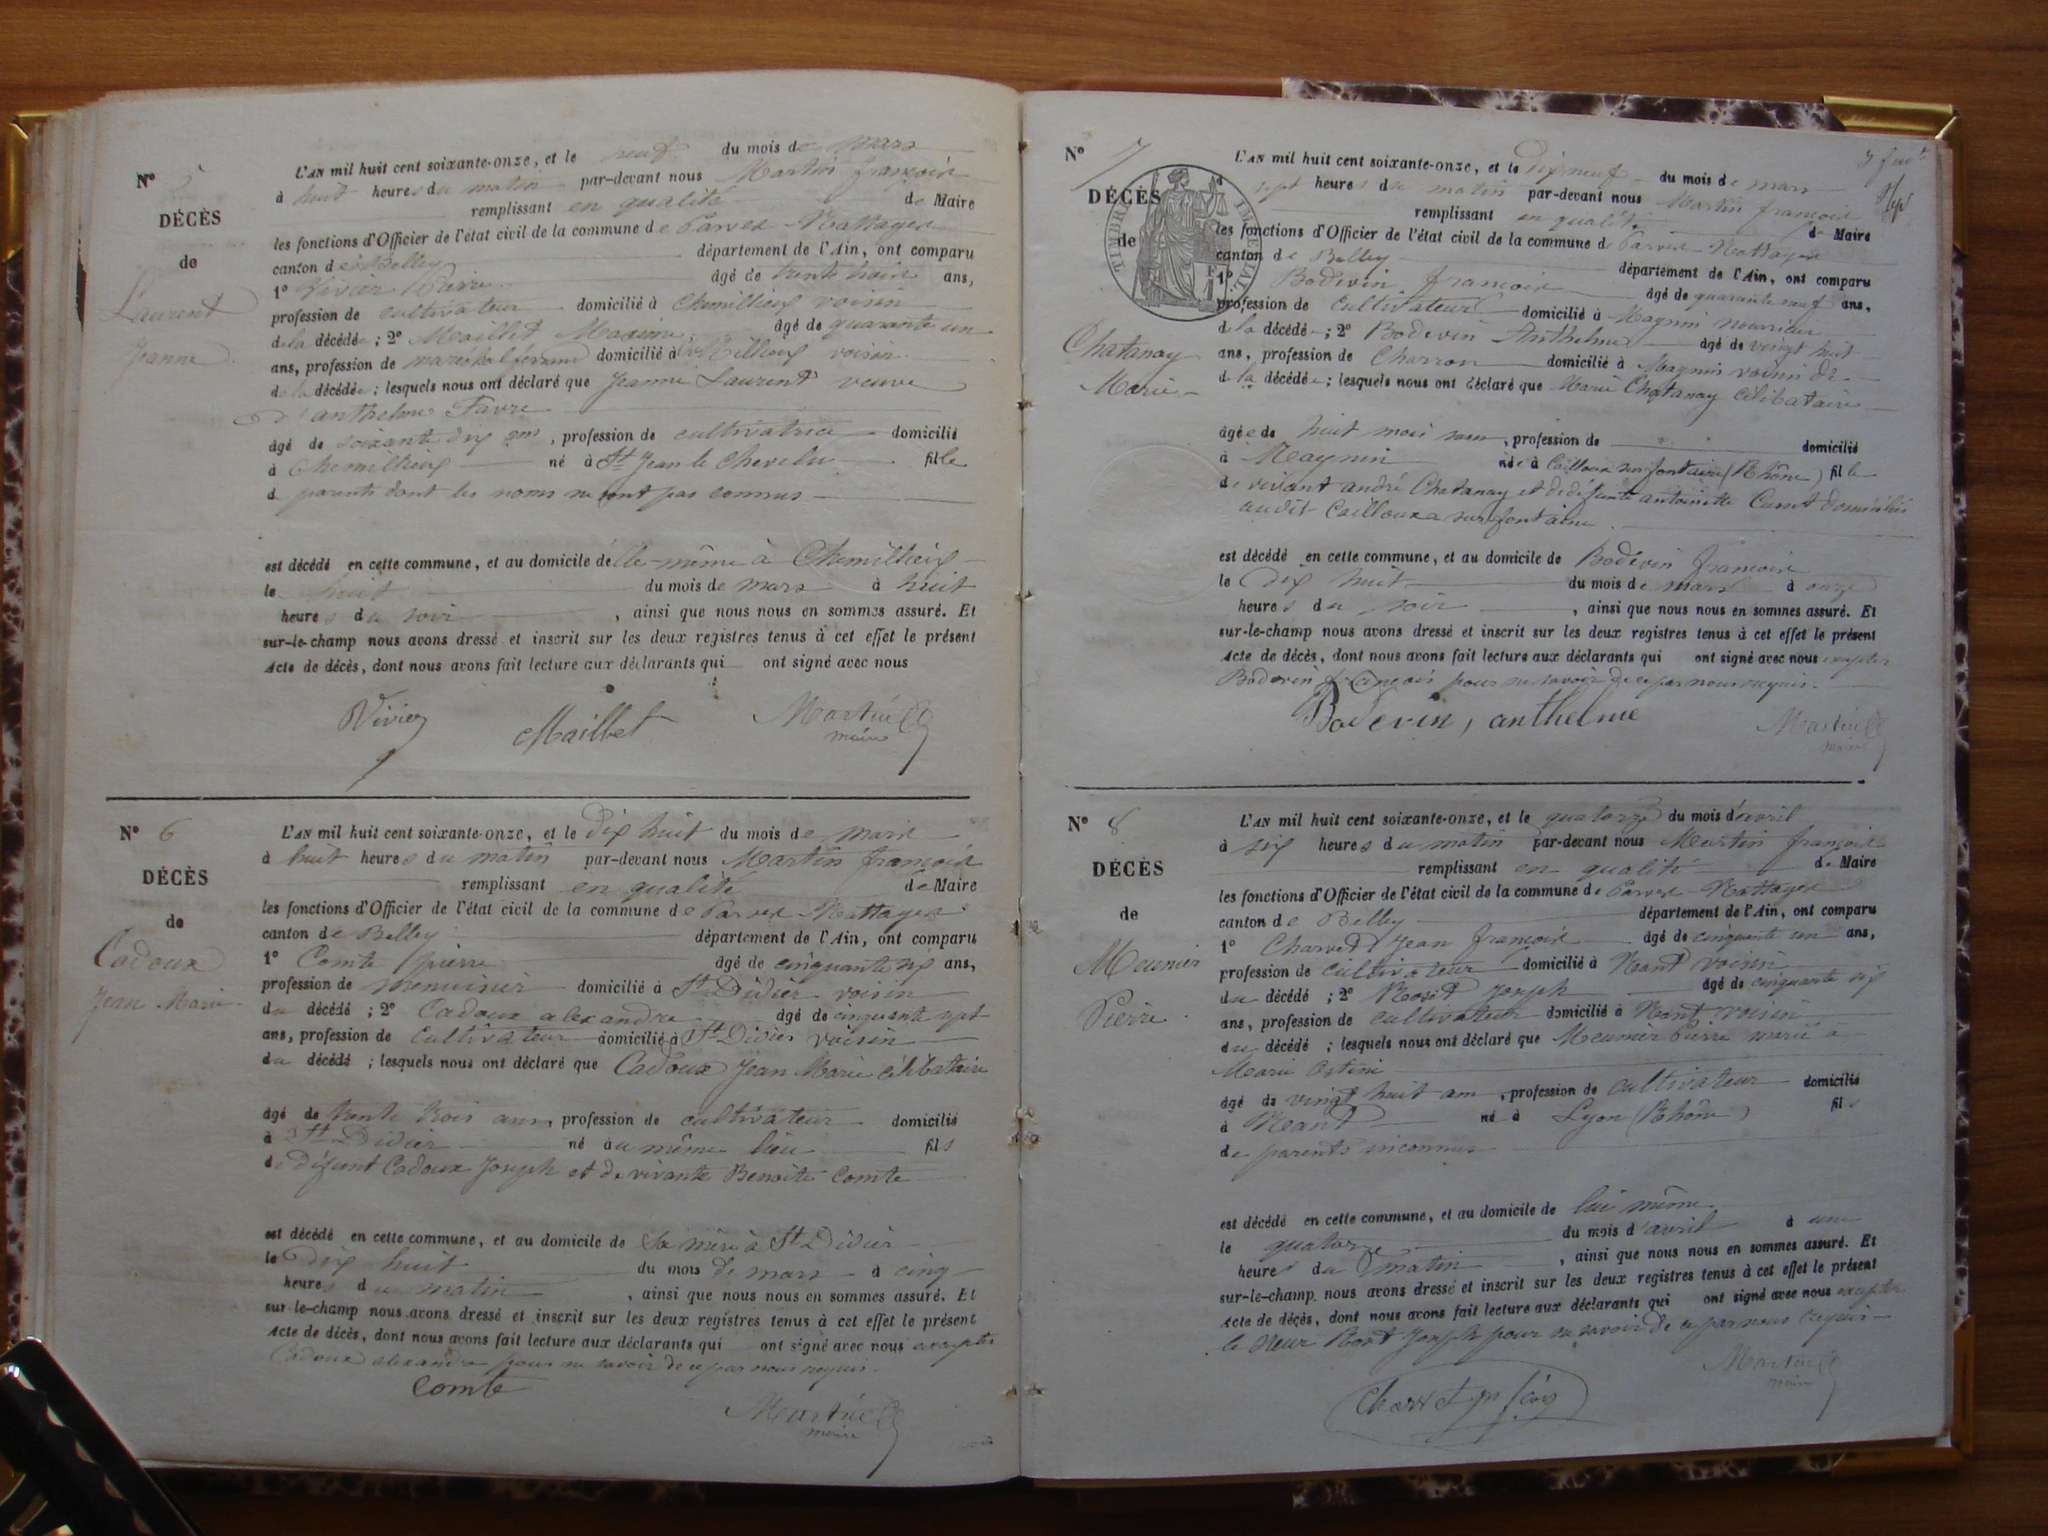 N° 5
DÉCÈS
de
Laurent
Jeanne
L'AN mil huit cent soixante-onze, et le neuf du mois de mars
à huit heures du matin par-devant nous Martin françois
remplissant en qualité de Maire
les fonctions d'Officier de l'état civil de la commune de Parves Nattages
canton de Belley département de l'Ain, ont comparu
1° Pierre âgé de trente ans,
profession de cultivateur domicilié à Chemillieu voisin
de la décédée ; 2° Maillet âgé de quarante un
ans, profession de marechal ferrant domicilié à voisin
de la décédée ; lesquels nous ont déclaré que Jeanne Laurent veuve
d'anthelme Favre
âgé de soixante dix ans, profession de cultivatrice domicilié
à Chemillieu né à St Jean le Chevelu fille
de parents dont les noms ne sont pas connus
est décédé en cette commune, et au domicile d'elle-même à Chemillieu
le huit du mois de mars à huit
heures du soir, ainsi que nous nous en sommes assuré. Et
sur-le-champ nous avons dressé et inscrit sur les deux registres tenus à cet effet le présent
Acte de décès, dont nous avons fait lecture aux déclarants qui ont signé avec nous
Maillet Martin
maire
N° 6
DÉCÈS
de
Cadoux
Jean Marie
L'AN mil huit cent soixante-onze, et le dix huit du mois de mars
à huit heures du matin par-devant nous Martin françois
remplissant en qualité de Maire
les fonctions d'Officier de l'état civil de la commune de Parves Nattages
canton de Belley département de l'Ain, ont comparu
1° Comte pierre âgé de cinquante six ans,
profession de menuisier domicilié à St Didier voisin
du décédé ; 2° Cadoux alexandre âgé de cinquante sept
ans, profession de cultivateur domicilié à St Didier voisin
du décédé ; lesquels nous ont déclaré que Cadoux Jean Marie célibataire
âgé de trente trois ans, profession de cultivateur domicilié
à St Didier né au même lieu fils
de défunt Cadoux Joseph et de vivante Benoite Comte
est décédé en cette commune, et au domicile de sa mère à St Didier
le dix huit du mois de mars à cinq
heures du matin, ainsi que nous nous en sommes assuré. Et
sur-le-champ nous avons dressé et inscrit sur les deux registres tenus à cet effet le présent
Acte de décès, dont nous avons fait lecture aux déclarants qui ont signé avec nous excepter
Cadoux alexandre pour ne savoir de ce par nous requis.
Comte
Martin
maire
N° 7
DÉCÈS
de
TIMBRE IMPÉRIAL
Chatanay
Marie
L'AN mil huit cent soixante-onze, et le dix neuf du mois de mars
à sept heures du matin par-devant nous Martin françois
remplissant en qualité de Maire
les fonctions d'Officier de l'état civil de la commune de Parves Nattages
canton de Belley département de l'Ain, ont comparu
1° Bodevin françois âgé de quarante neuf ans,
profession de cultivateur domicilié à nourricier
de la décédée ; 2° Bodevin Anthelme âgé de vingt huit
ans, profession de Charron domicilié à voisin de
de la décédée ; lesquels nous ont déclaré que Marie Chatanay célibataire
âgée de huit mois, profession de domicilié
à née à Cailloux sur fontaine (Rhône) fille
de vivant andré Chatanay et de défunte antoinette domiciliés
audit Cailloux sur fontaine
est décédé en cette commune, et au domicile de Bodevin françois
le dix huit du mois de mars à onze
heures du soir, ainsi que nous nous en sommes assuré. Et
sur-le-champ nous avons dressé et inscrit sur les deux registres tenus à cet effet le présent
Acte de décès, dont nous avons fait lecture aux déclarants qui ont signé avec nous excepter
Bodevin françois pour ne savoir de ce par nous requis.
Bodevin, anthelme
Martin
maire
N° 8
DÉCÈS
de
Meunier
Pierre
L'AN mil huit cent soixante-onze, et le quatorze du mois d'avril
à six heures du matin par-devant nous Martin françois
remplissant en qualité de Maire
les fonctions d'Officier de l'état civil de la commune de Parves Nattages
canton de Belley département de l'Ain, ont comparu
1° Charvet Jean françois âgé de cinquante un ans,
profession de cultivateur domicilié à Nant voisin
du décédé ; 2° Joseph âgé de cinquante six
ans, profession de cultivateur domicilié à Nant voisin
du décédé ; lesquels nous ont déclaré que Meunier Pierre marié à
Marie
âgé de vingt huit ans, profession de cultivateur domicilié
à Nant né à Lyon (Rhône) fils
de parents inconnus
est décédé en cette commune, et au domicile de lui même
le quatorze du mois d'avril à une
heures du matin, ainsi que nous nous en sommes assuré. Et
sur-le-champ nous avons dressé et inscrit sur les deux registres tenus à cet effet le présent
Acte de décès, dont nous avons fait lecture aux déclarants qui ont signé avec nous excepter
le sieur Joseph pour ne savoir de ce par nous requis
Martin
maire